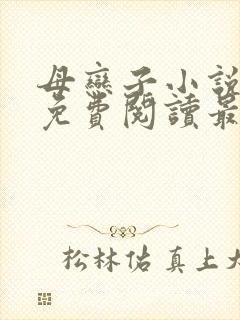 母戀子小說
免費閱讀最
松林佑真上大